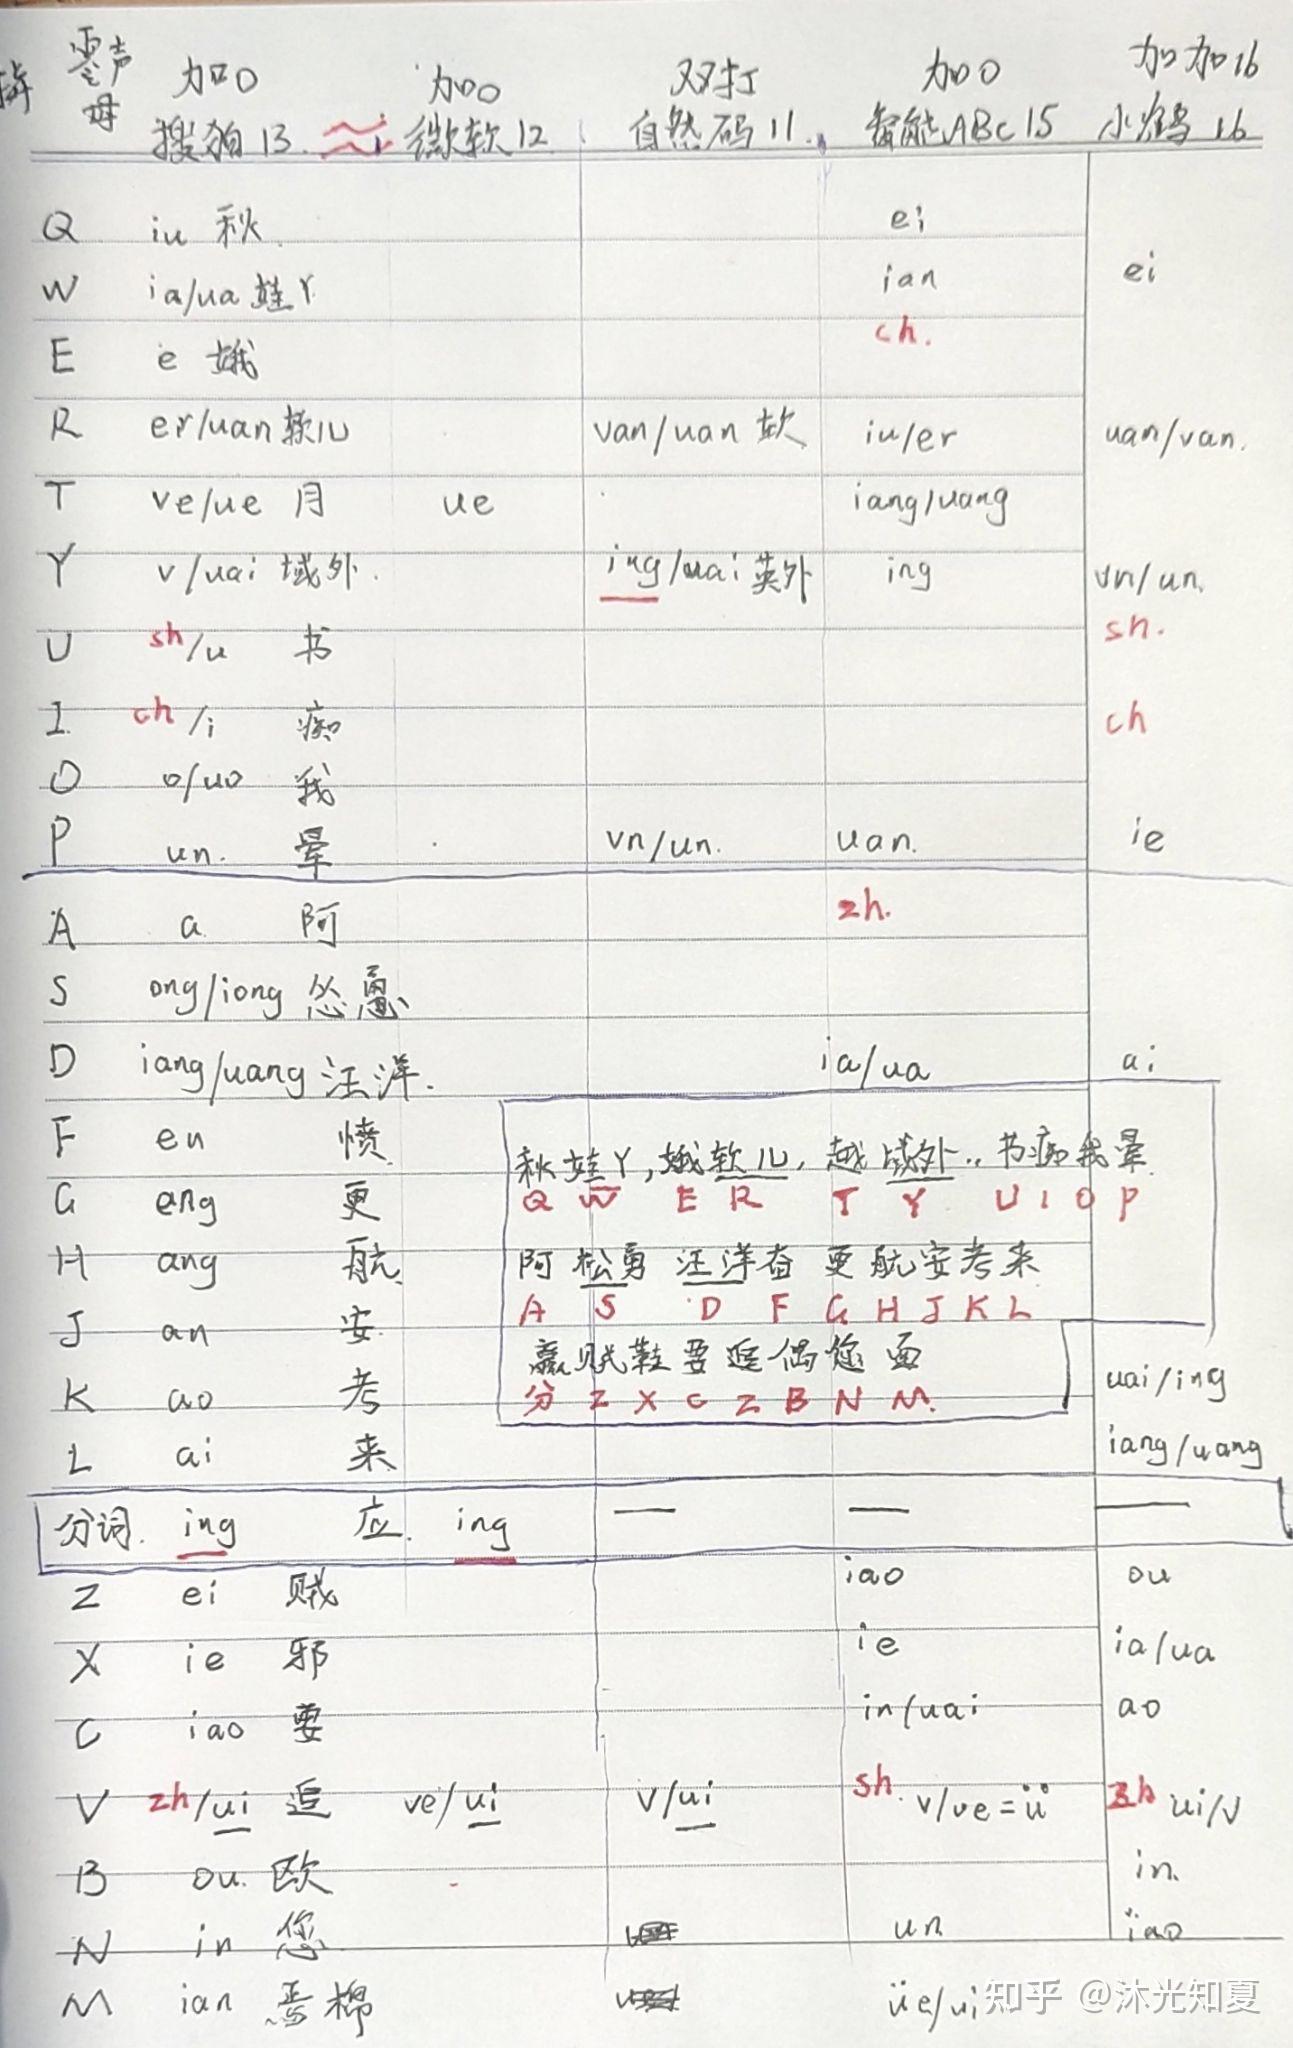 拼 零声母 加O 加O 双打 加O 加加16
搜狗13. 微软12 自然码11. 智能ABC15 小鹤16
Q iu 秋. ei
W ia/ua 娃丫 ian ei
E e 娥 ch.
R er/uan 软儿 van/uan 软 iu/er uan/van.
T ve/ue 月 ue iang/uang
Y v/uai 域外. ing/uai 英外 ing vn/un.
U sh/u 书 sh.
I ch/i 痴 ch
O o/uo 我
P un. 晕 vn/un. uan. ie
A a 阿 zh.
S ong/iong 怂恿
D iang/uang 汪洋. ia/ua ai
F en 愤
G eng 更
H ang 航
J an 安
K ao 考 uai/ing
L ai 来 iang/uang
秋娃丫,娥软儿,越域外,书痴我晕.
Q W E R T Y U I O P
阿松勇汪洋奋更航安考来
A S D F G H J K L
赢贼鞋要追偶您面
分 Z X C Z B N M.
分词. ing 应. ing — — —
Z ei 贼 iao ou
X ie 邪 ie ia/ua
C iao 要 in/uai ao
V zh/ui 追 ve/ui v/ui sh. v/ve=ü zh ui/v
B ou. 欧 in.
N in 您 un iao
M ian 棉 üe/ui
知乎 @沐光知夏